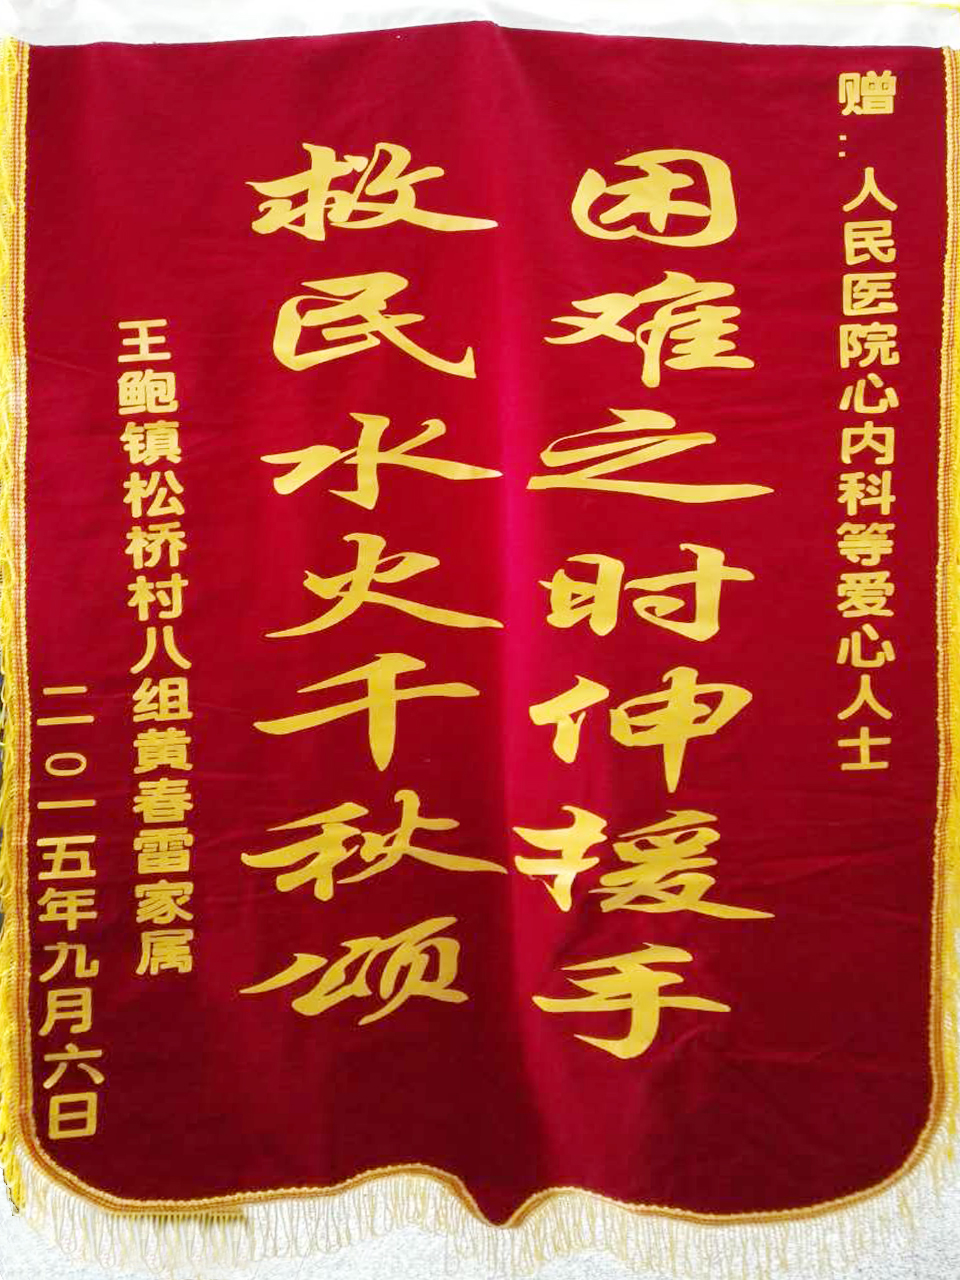 赠：人民医院心内科等爱心人士
困难之时伸援手
救民水火千秋颂
王鲍镇松桥村八组黄春雷家属
二〇一五年九月六日